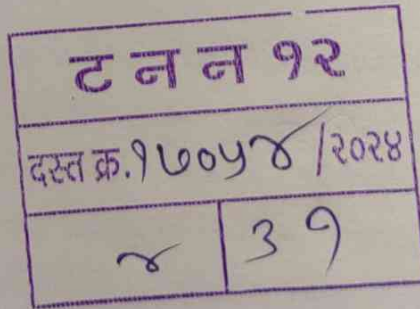 ट न न १२
दस्त क्र. १७०५४ / २०२४
४ ३१